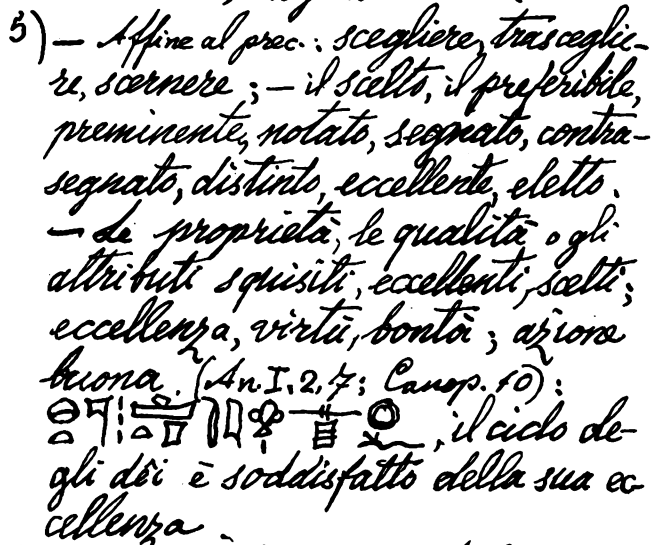 5) — Affine al prec.: scegliere, trasceglie-
re, scernere; — il scelto, il preferibile,
preminente, notato, segnato, contra-
segnato, distinto, eccellente, eletto.
— Le proprietà, le qualità o gli
attributi squisiti, eccellenti, scelti;
eccellenza, virtù, bontà; azione
buona. (An. I, 2, 7; Canop. 10):
, il ciclo de-
gli dêi è soddisfatto della sua ec-
cellenza.